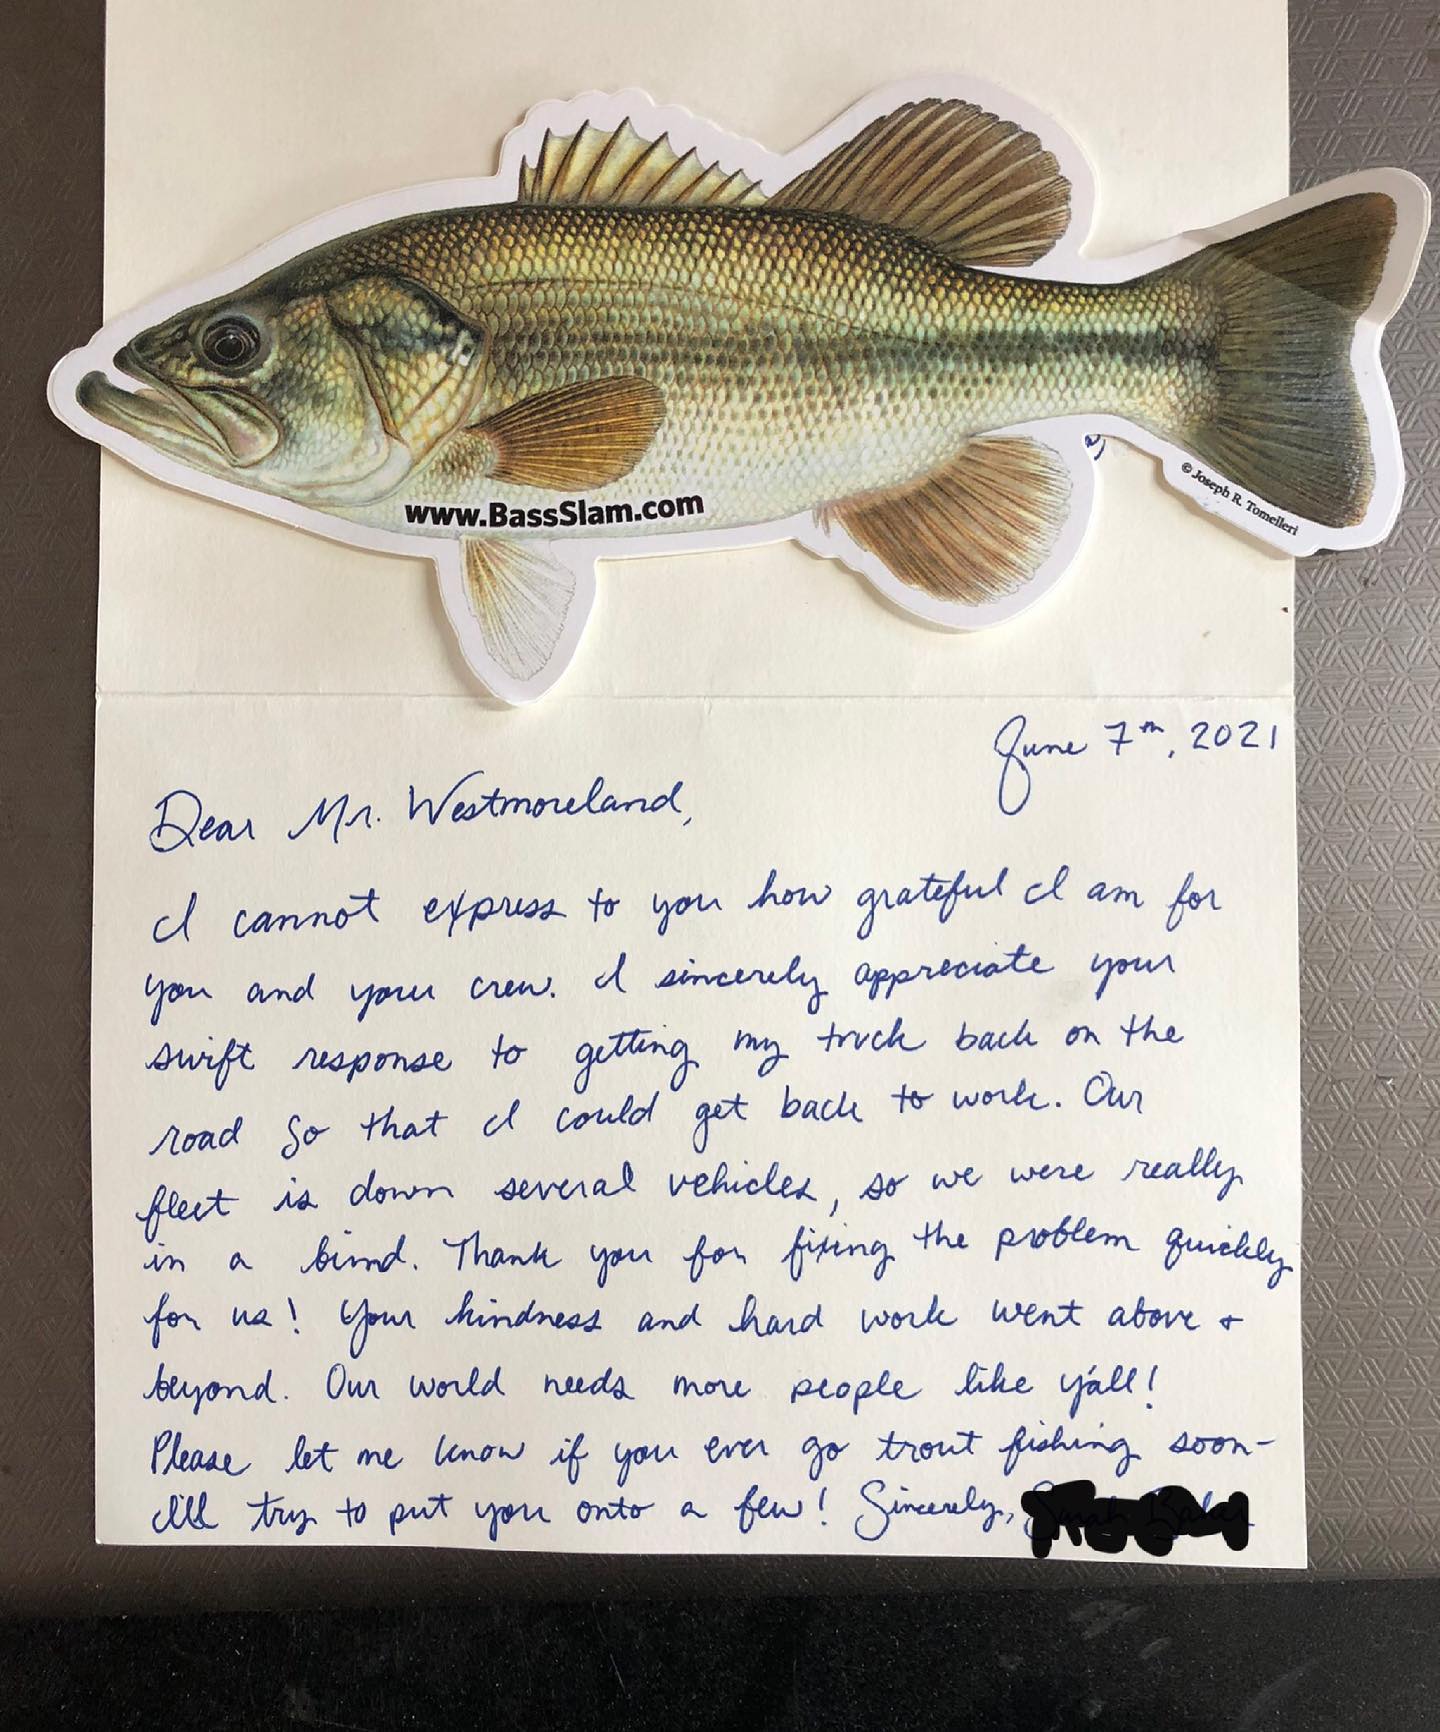 www.BassSlam.com
© Joseph R. Tomelleri
June 7th, 2021
Dear Mr. Westmoreland,
I cannot express to you how grateful I am for
you and your crew. I sincerely appreciate your
swift response to getting my truck back on the
road so that I could get back to work. Our
fleet is down several vehicles, so we were really
in a bind. Thank you for fixing the problem quickly
for us! Your kindness and hard work went above +
beyond. Our world needs more people like y'all!
Please let me know if you ever go trout fishing soon-
I'll try to put you onto a few! Sincerely,